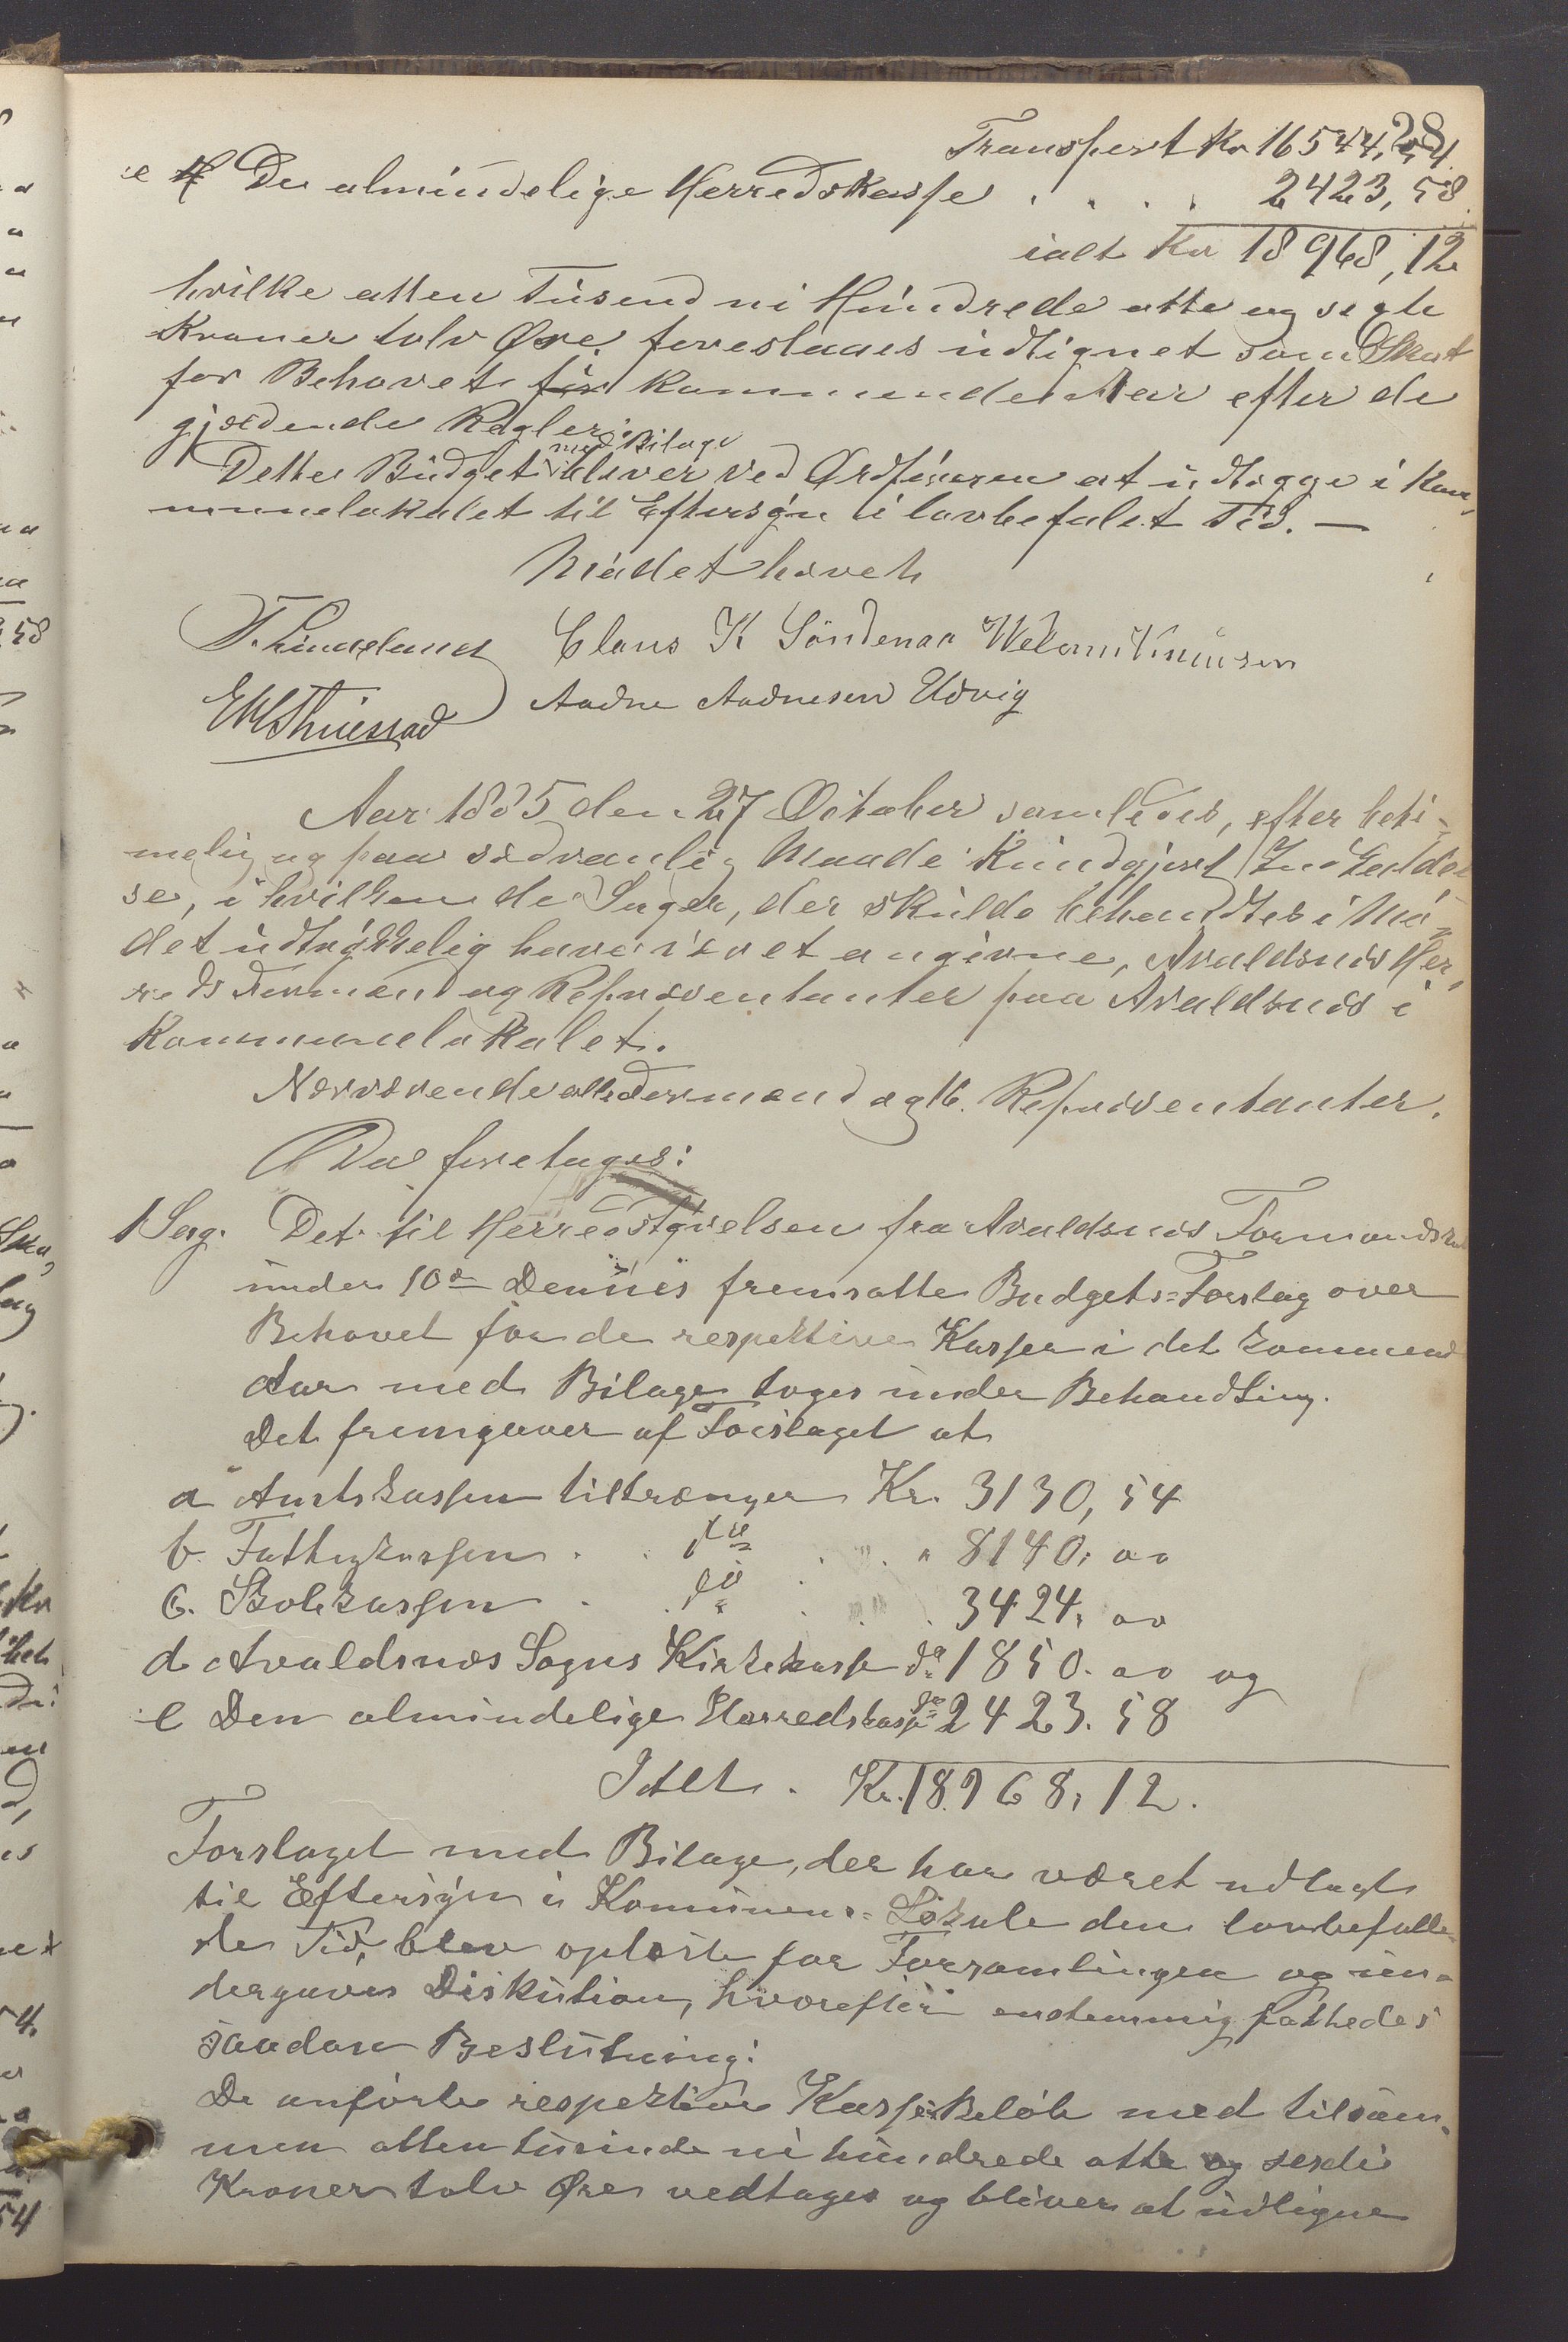 28
Transport Kr 16544,54
e Den almindelige Herredskasse . . . . 2423,58
ialt Kr 18968,12
hvilke atten Tusend ni Hundrede otte og segti
Kroner tolv Øre, foreslaaes udlignet som Skat
for Behovet for kommende Aar efter de
gjældende Regler.
med Bilage
Dette Budget bliver ved Ordføreren at udlægge i Kom-
munelokalet til Eftersyn i lovbefalet Tid. —
Mødet hævet
Claus K Söndenaa Knudsen
Aadne Aadnesen Udvig
Aar 1885 den 27 October samledes, efter beti-
melig og paa sædvanlig Maade Kundgjort Indkaldel
se, i hvilken de Sager, der skulde behandles i Mø-
det udtrykkelig have været angivne, Avaldsnæs Her-
reds Formænd og Repræsentanter paa Avaldsnæs i
Kommunelokalet.
Nærværende alle Formænd og 16. Repræsentanter.
Da foretages:
1 Sag. Det til Herredstyrelsen fra Avaldsnæs Formandsk
under 10de Dennes fremsatte Budgets-Forslag over
Behovet for de respektive Kasser i det kommend
Aar med Bilage toges under Behandling.
Det fremgaaer af Forslaget at
a Amtskassen tiltrænger Kr. 3130,54
b. Fattigkassen . . do . . " 8140, oo
c. Skolekassen . . do . . . 3424, oo
d Avaldsnæs Sogns Kirkekasse do 1850. oo og
e Den almindelige Herredskasse do 2423.58
Ialt . Kr. 18.968,12.
Forslaget med Bilage, der har været udlagt
til Eftersyn i Kommunens Lokale den lovbefalle-
de Tid, blev oplæst for Forsamlingen og un-
dergaves Diskution, hvorefter enstemmig fattedes
saadan Beslutning:
De anførte respektive Kasse Beløb med tilsam-
men atten tusinde ni hundrede otte og sexti
Kroner tolv Øre vedtages og bliver at udligne